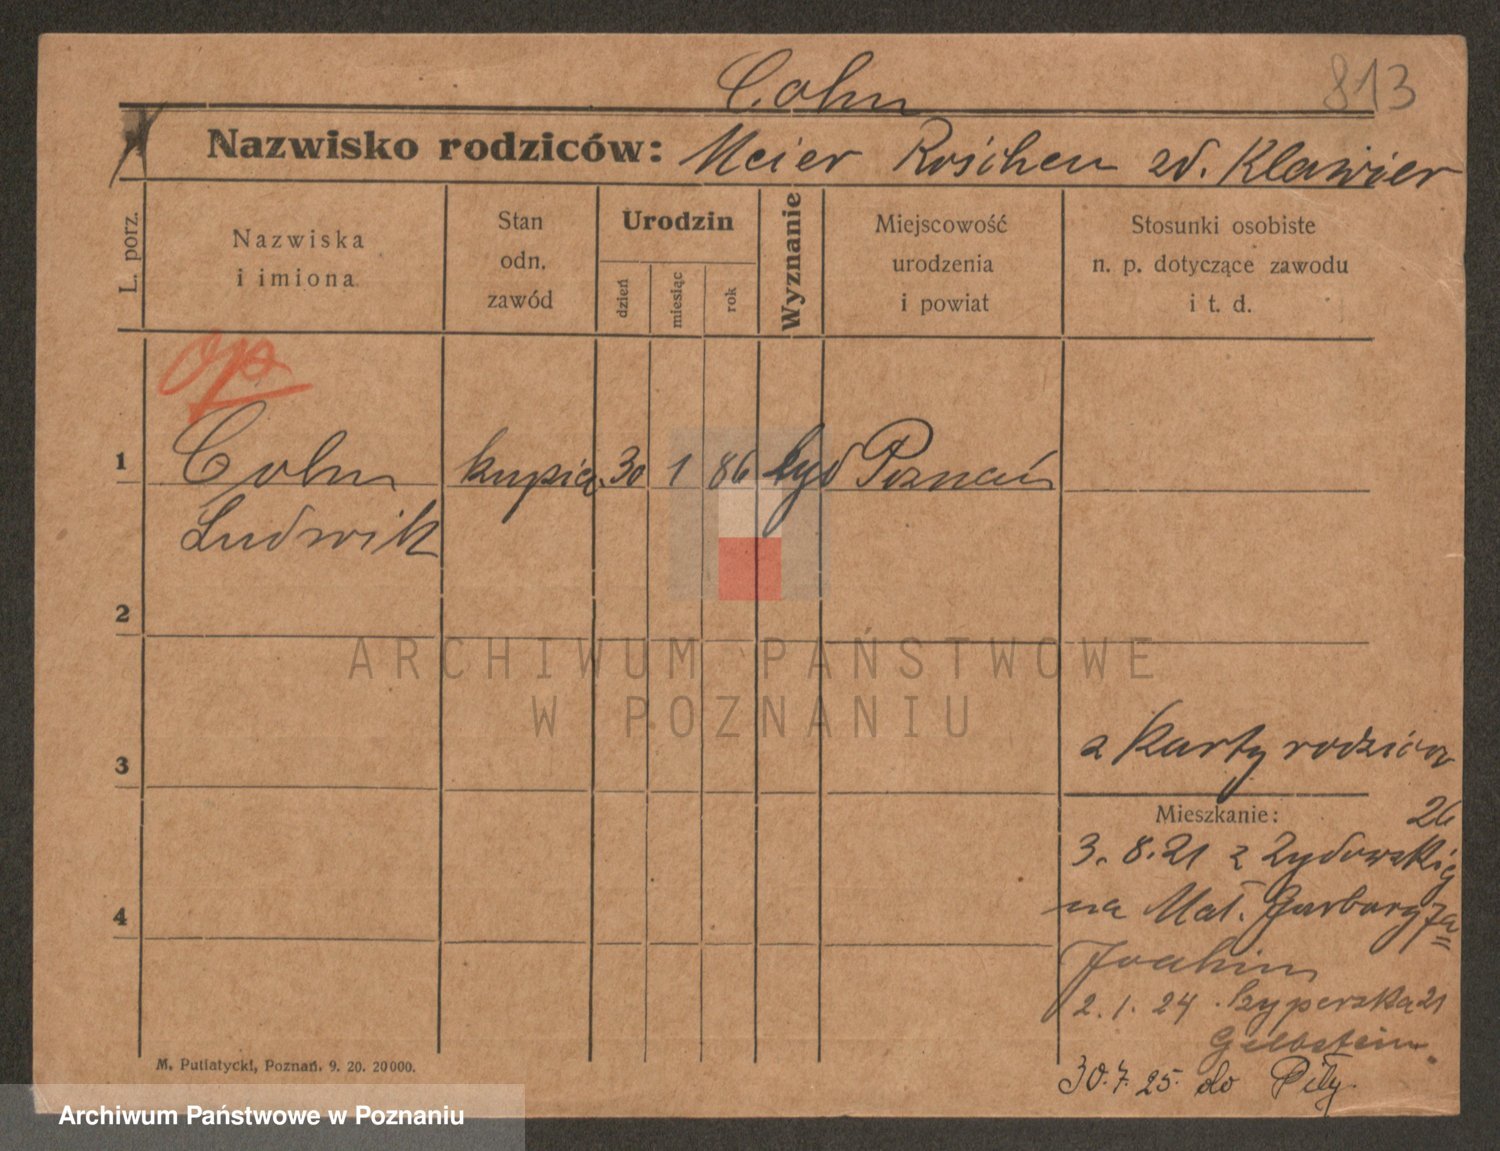 Cohn
813
Nazwisko rodziców: Meier Roschen zd. Klawier
L. porz.
Nazwiska
i imiona
Stan
odn.
zawód
Urodzin
dzień
miesiąc
rok
Wyznanie
Miejscowość
urodzenia
i powiat
Stosunki osobiste
n. p. dotyczące zawodu
i t. d.
op
1 Cohn kupiec 30 1 86 żyd Poznań
Ludwik
2
3
z karty rodziców
Mieszkanie:
26
3. 8. 21 z Żydowskiej
na Mał. Garbary 7a
4
Joachim
2. 1. 24 . Szyperska 21
Gelbstein
30. 7. 25. do Piły.
M. Putiatycki, Poznań. 9. 20. 20000.
ARCHIWUM PAŃSTWOWE
W POZNANIU
Archiwum Państwowe w Poznaniu